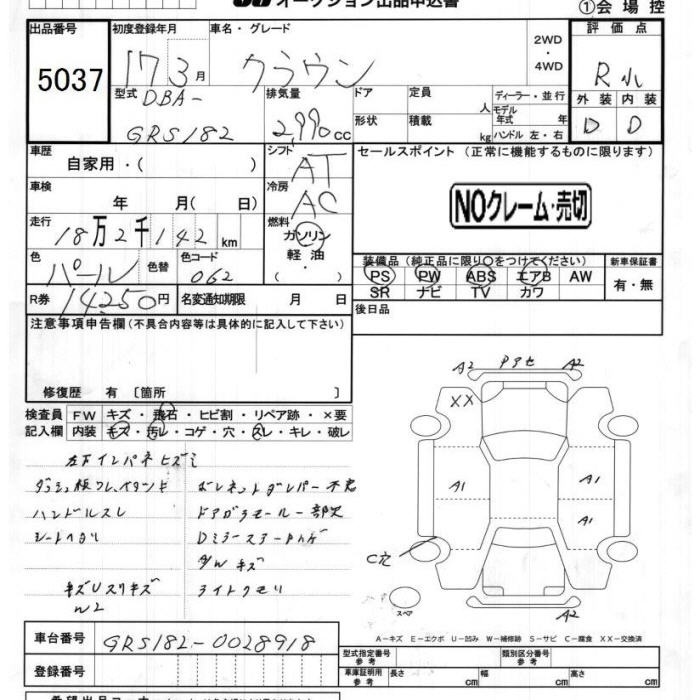 オークション出品申込書
①会場控
出品番号
5037
初度登録年月
17 3月
車名・グレード
クラウン
2WD
・
4WD
評価点
R小
外装 内装
D D
型式
DBA-
GRS182
排気量
2,990cc
ドア
定員 人
形状
積載 kg
ディーラー・並行
モデル年式 年式
ハンドル 左・右
車歴
自家用・( )
シフト
AT
車検
年 月( 日)
冷房
AC
走行
18万2千142km
燃料
ガソリン
軽油
( )
色
パール
色替
色コード
062
R券
14250円
名変通知期限 月 日
セールスポイント(正常に機能するものに限ります)
NOクレーム・売切
装備品(純正品に限り○をつけてください)
PS PW ABS エアB AW
SR ナビ TV カワ
新車保証書
有・無
後日品
注意事項申告欄(不具合内容等は具体的に記入して下さい)
修復歴 有〔箇所 〕
検査員記入欄
FW キズ・飛石・ヒビ割・リペア跡・×要
内装 キズ・汚レ・コゲ・穴・スレ・キレ・破レ
ハンドルスレ
キズUスリキズ
W2
A2 A2
XX
A1 A1
A1
C穴
スペア
A2
A-キズ E-エクボ U-凹み W-補修跡 S-サビ C-腐食 XX-交換済
車台番号
GRS182-0028918
登録番号
型式指定番号 参考
類別区分番号 参考
車庫証明用 参考
長さ cm
幅 cm
高さ cm